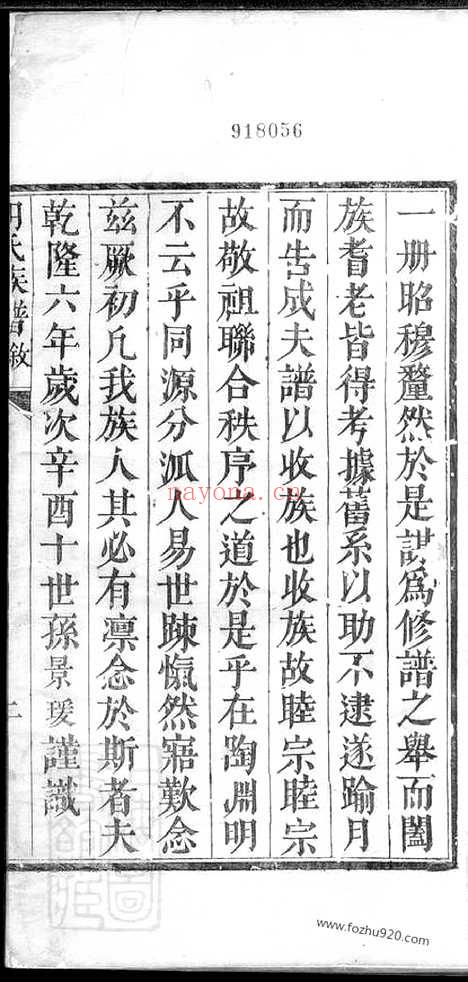 918056
一册昭穆釐然於是謀為修譜之舉而闔
族耆老皆得考據舊系以助不逮遂踰月
而告成夫譜以收族也收族故睦宗睦宗
故敬祖聯合秩序之道於是乎在陶淵明
不云乎同源分派人易世踈慨然寤歎念
茲厥初凡我族人其必有凛念於斯者夫
乾隆六年歲次辛酉十世孫景瑗謹識
氏族譜敘
二
nayona.cn
www.fozhu920.com